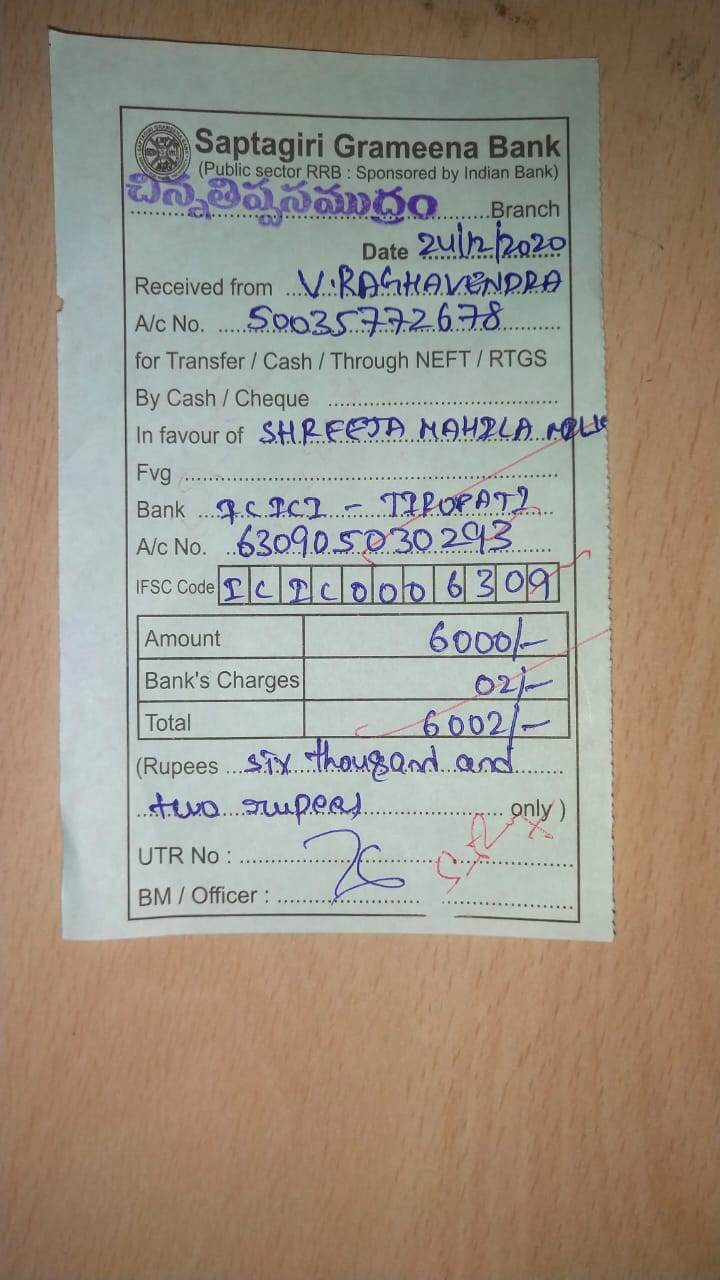 Saptagiri Grameena Bank
(Public sector RRB : Sponsored by Indian Bank)
చిన్నతిప్పసముద్రం Branch
Date 24/12/2020
Received from V.RAGHAVENDRA
A/c No. 50035772678
for Transfer / Cash / Through NEFT / RTGS
By Cash / Cheque
In favour of SHREEJA MAHILA MILK
Fvg
Bank ICICI - TIRUPATI
A/c No. 630905030293
IFSC Code ICIC0006309
Amount 6000/-
Bank's Charges 02/-
Total 6002/-
(Rupees six thousand and
two rupees only )
UTR No :
BM / Officer :